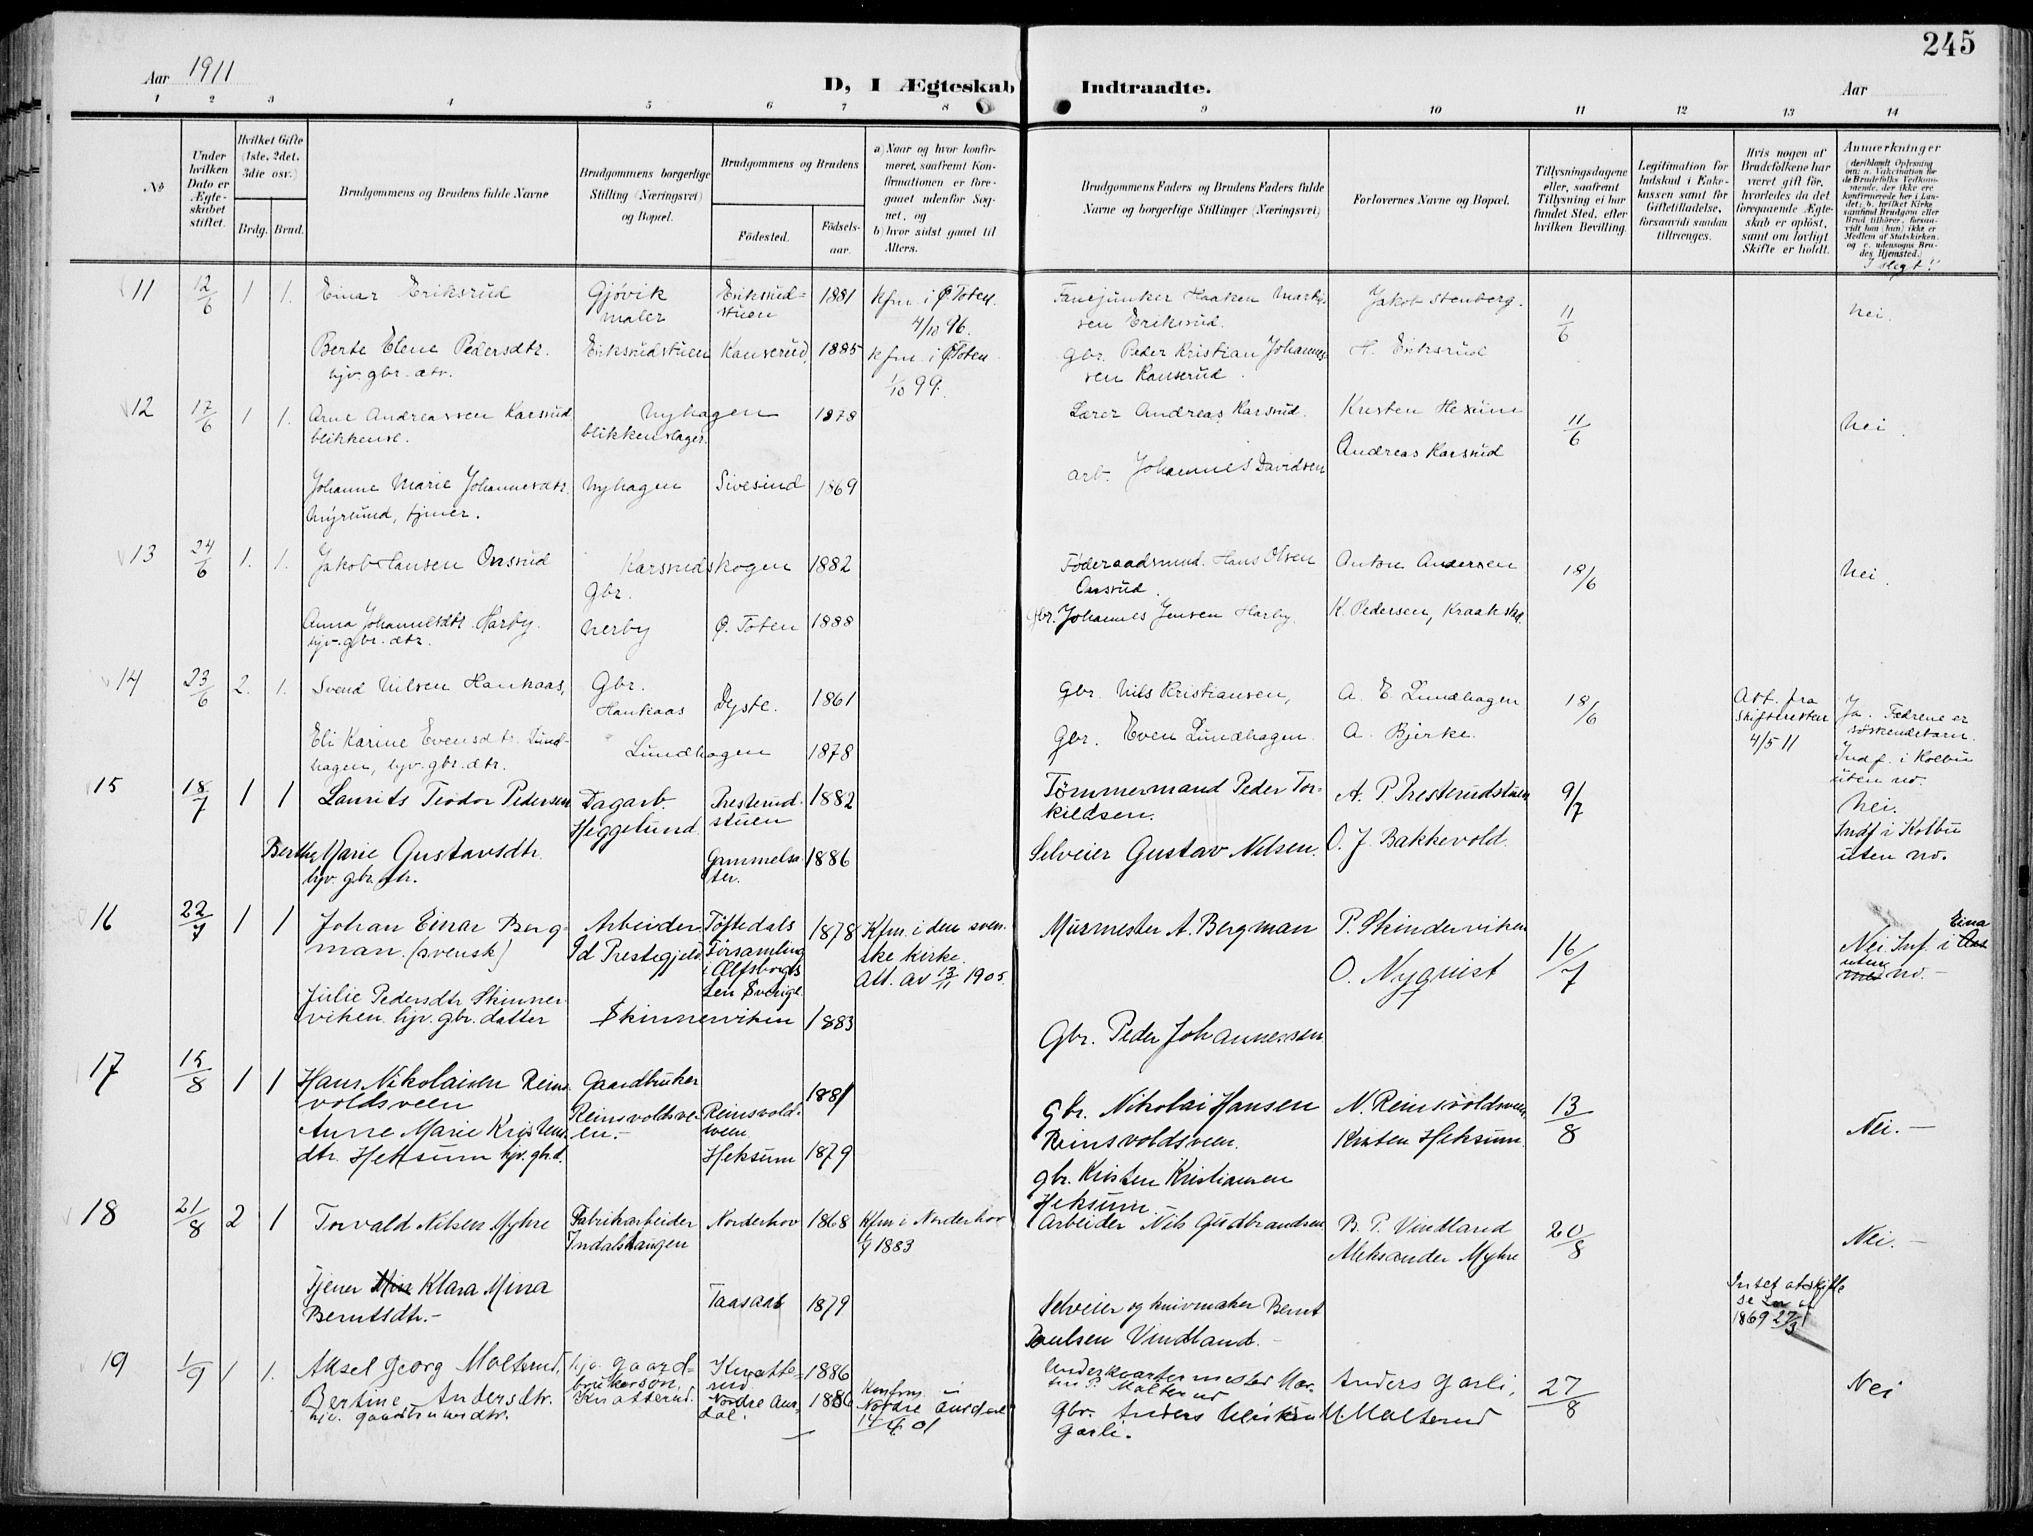 245
Aar 1911
D, I Ægteskab Indtraadte.
Aar
1 2 3 4 5 6 7 8 9 10 11 12 13 14
No
Under hvilken Dato er Ægteskabet stiftet.
Hvilket Gifte (1ste, 2det, 3die osv.)
Brdg. Brud.
Brudgommens og Brudens fulde Navne
Brudgommens borgerlige Stilling (Næringsvei) og Bopæl.
Brudgommens og Brudens
Fødested.
Fødsels-aar.
a) Naar og hvor konfirmeret, saafremt Konfirmationen er foregaaet udenfor Sognet, og
b) hvor sidst gaaet til Alters.
Brudgommens Faders og Brudens Faders fulde Navne og borgerlige Stillinger (Næringsvei)
Forlovernes Navne og Bopæl.
Tillysningsdagene eller, saafremt Tillysning ei har fundet Sted, efter hvilken Bevilling.
Legitimation for Indskud i Enkekassen samt for Giftetilladelse, forsaavidt saadan tiltrænges.
Hvis nogen af Brudefolkene har været gift før, hvorledes da det foregaaende Ægteskab er opløst, samt om lovligt Skifte er holdt.
Anmærkninger
11 12/6 1 1. Einar Eriksrud Gjøvik maler Eriksrud=stuen 1881 kfm. i Ø Toten 4/10 96.
Fanejunker Haaken Jakob Stenberg. 11/6 nei.
sen Eriksrud.
Berte Elene Pedersdtr. Eriksrudstuen Kanserud 1885 kfm. i ØToten 1/10 99.
hjv. gbr. dtr.
Gbr. Peder Kristian Johannes H. Eriksrud
sen Kanserud.
12 17/6 1 1. Arne Andreassen Karsrud Nyhagen 1878
blikkensl. blikkenslager.
Lærer Andreas Karsrud. Kristen 11/6 Nei.
Andreas Karsrud
Arb. Johannes Davidsen
Johanne Marie Johannesdtr. Nyhagen Sivesind 1869
Myrlund, tjener.
13 24/6 1. 1. Jakob Hansen Onsrud Karsrudskogen 1882
Gbr.
Føderaadsmand. Hans Olsen Anton Andersen 18/6 Nei.
Onsrud.
Anna Johannesdtr. Harby. Nerby Ø. Toten 1888
hjv. gbr. dtr.
Gbr. Johannes Jensen Harby. K. Pedersen,
14 23/6 2. 1. Svend Nilsen Hankaas, Gbr. Hankaas Dyste. 1861
Gbr. Nils Kristiansen, A. E Lundhagen 18/6 Att. fra skifteretten 4/5 11
Ja. Fædrene er søskendebarn.
Eli Karine Evensdtr. Lund-hagen, hjv. gbr. dtr. Lundhagen 1878
Gbr. Even Lundhagen. A. Bjerke. Indf. i Kolbu uten no.
15 18/7 1 1 Laurits Teodor Pedersen Dagarb. Heggelund. Presterud-stuen 1882
Tømmermand Peder Tor-kildsen. A. P. Presterudstuen 9/7 Nei.
Indf i Kolbu uten no.
Berthe Marie Gustavsdtr. 1886
hjv. gbr. dtr.
Selveier Gustav Nilsen. O. J. Bakkevold.
16 22/7 1 1 Johan Einar Berg-man. (svensk) Arbeider Toftedals Församling i Elfsborgs Len Sverige. 1878 Kfm. i den sven-ske kirke.
Att. av 13/11 1905.
Murmester A. Bergman P. Skinderviken
O. Nyquist 16/7 Nei. Inf. i Eina
uten no. -
Julie Pedersdtr. Skinner-viken. hjv. gbr. datter Skinnerviken 1883
Gbr. Peder Johannessen
17 15/8 1 1 Hans Nikolaisen Reins-voldsveen Gaardbruker Reinsvoldsve-en. - Reinsvold-sveen 1881
Gbr. Nikolai Hansen N. Reinsvoldsveen 13/8 Nei. -
Reinsvoldsveen.
Anne Marie Kristens-dtr. Heksum hjv. gb.d. Heksum 1879
gbr. Kristen Kristiansen Kristen Heksum.
Heksum. -
18 21/8 2 1 Torvald Nilsen Myhre Fabrikarbeider Norderhov 1868 Kfm i Norderhov
1883
Arbeider Nils Gudbrandsen B. P. Vindland
Aleksander Myhre 20/8 Nei. -
Tjener Klara Mina Berntsdtr. - Taasaas 1879
Selveier og knivmaker Bernt
Paulsen Vindland. -
19 1/9 1 1. Aksel Georg Molterud, hjv. gaard=brukerson, Knatterud. Knatte=rud 1886
Underkvartermester
Anders Garli, 27/8 Nei
Bertine Andersdtr. Nordre Aur-dal. 1886 Konfirm. i Nordre Aurdal
hjv. gaardbrukerdtr.
Gbr. Anders Garli. M. Molterud